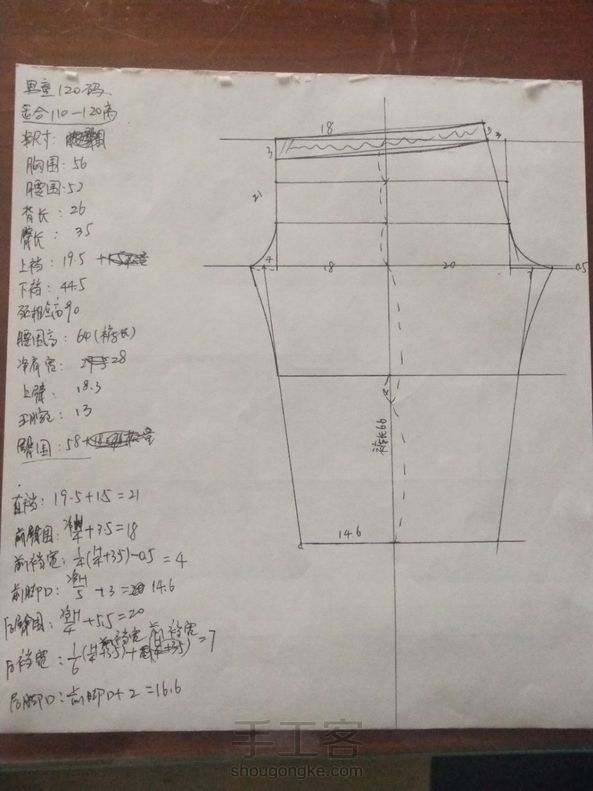 男童120码
适合110-120高
净尺寸:
胸围:56
腰围:52
背长:26
臀长:35
上裆:19.5
下裆:44.5
腰围高:64(裤长)
净肩宽:28
上臂:18.3
手腕:13
臀围:58+
直裆:19.5+1.5=21
前臀围:净H/4+3.5=18
前裆宽:1/4(H/4+3.5)-0.5=4
前脚口:净H/5+3=14.6
后臀围:净H/4+5.5=20
后裆宽:1/6(H/4+3.5)+前裆宽=7
后脚口:前脚口+2=16.6
18
3
3
21
4
18
20
0.5
裤长66
14.6
手工客
shougongke.com